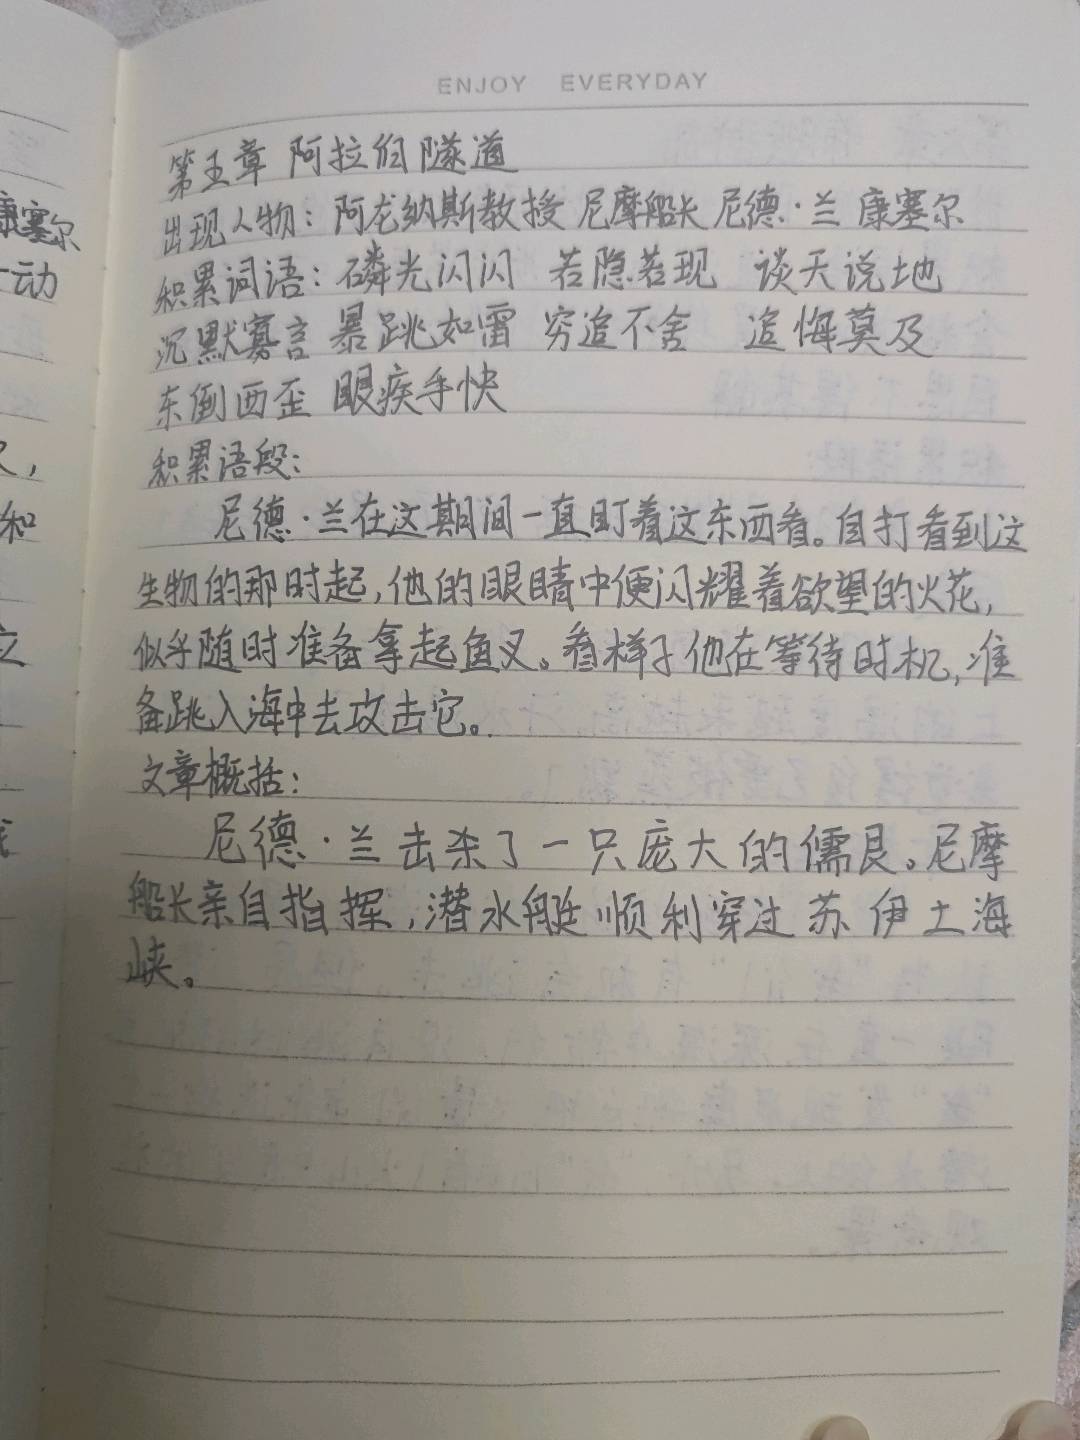 ENJOY EVERYDAY
第五章 阿拉伯隧道
出现人物：阿龙纳斯教授 尼摩船长 尼德·兰 康塞尔
积累词语：磷光闪闪 若隐若现 谈天说地
沉默寡言 暴跳如雷 穷追不舍 追悔莫及
东倒西歪 眼疾手快
积累语段：
尼德·兰在这期间一直盯着这东西看。自打看到这
生物的那时起，他的眼睛中便闪耀着欲望的火花，
似乎随时准备拿起鱼叉。看样子他在等待时机，准
备跳入海中去攻击它。
文章概括：
尼德·兰击杀了一只庞大的儒艮。尼摩
船长亲自指挥，潜水艇顺利穿过苏伊士海
峡。
康塞尔
动
和